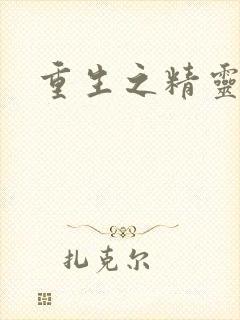 重生之精靈
扎克尔